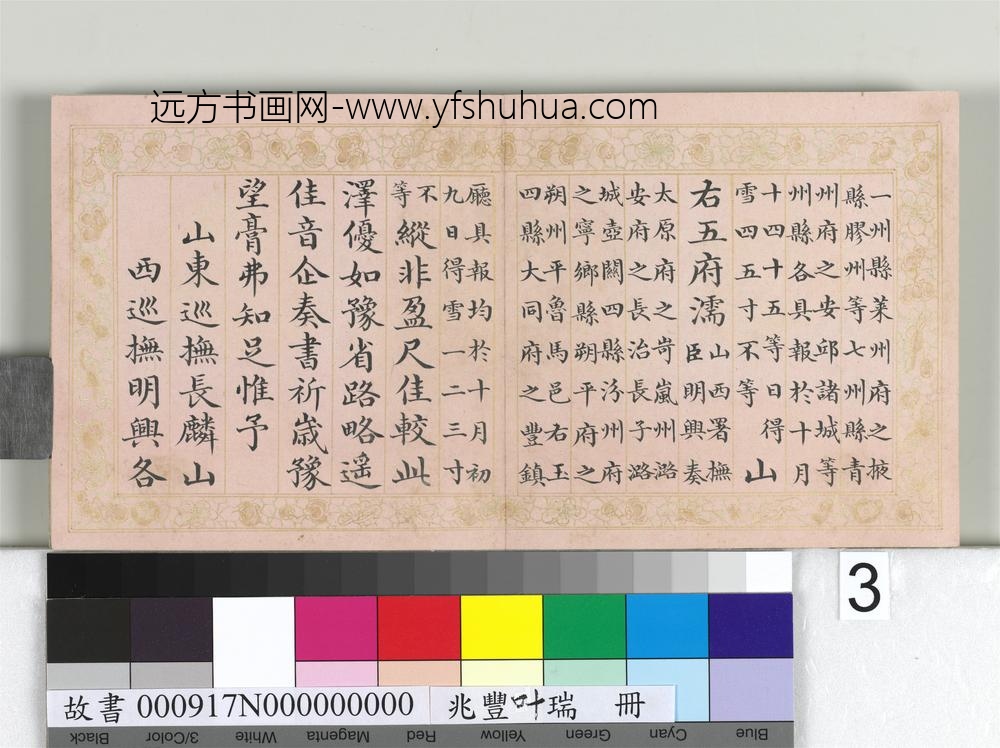 远方书画网-www.yfshuhua.com
一州縣萊州府之掖
縣膠州等七州縣青
州府之安邱諸城等
州縣各具報於十月
十四十五等日得
雪四五寸不等
山
右五府濡
山西署撫
臣明興奏
太原府之岢嵐州潞
安府之長治長子潞
城壺關四縣汾州府
之寧鄉縣朔平府之
朔州平魯馬邑右玉
四縣大同府之豐鎮
廳具報均於十月初
九日得雪一二三寸
不
等
縱非盈尺佳較此
澤優如豫省路略遥
佳音企奏書祈歲豫
望膏弗知足惟予
山東巡撫長麟山
西巡撫明興各
3
故書 000917N000000000 兆豐叶瑞 冊
Black 3/Color White Magenta Red Yellow Green Cyan Blue